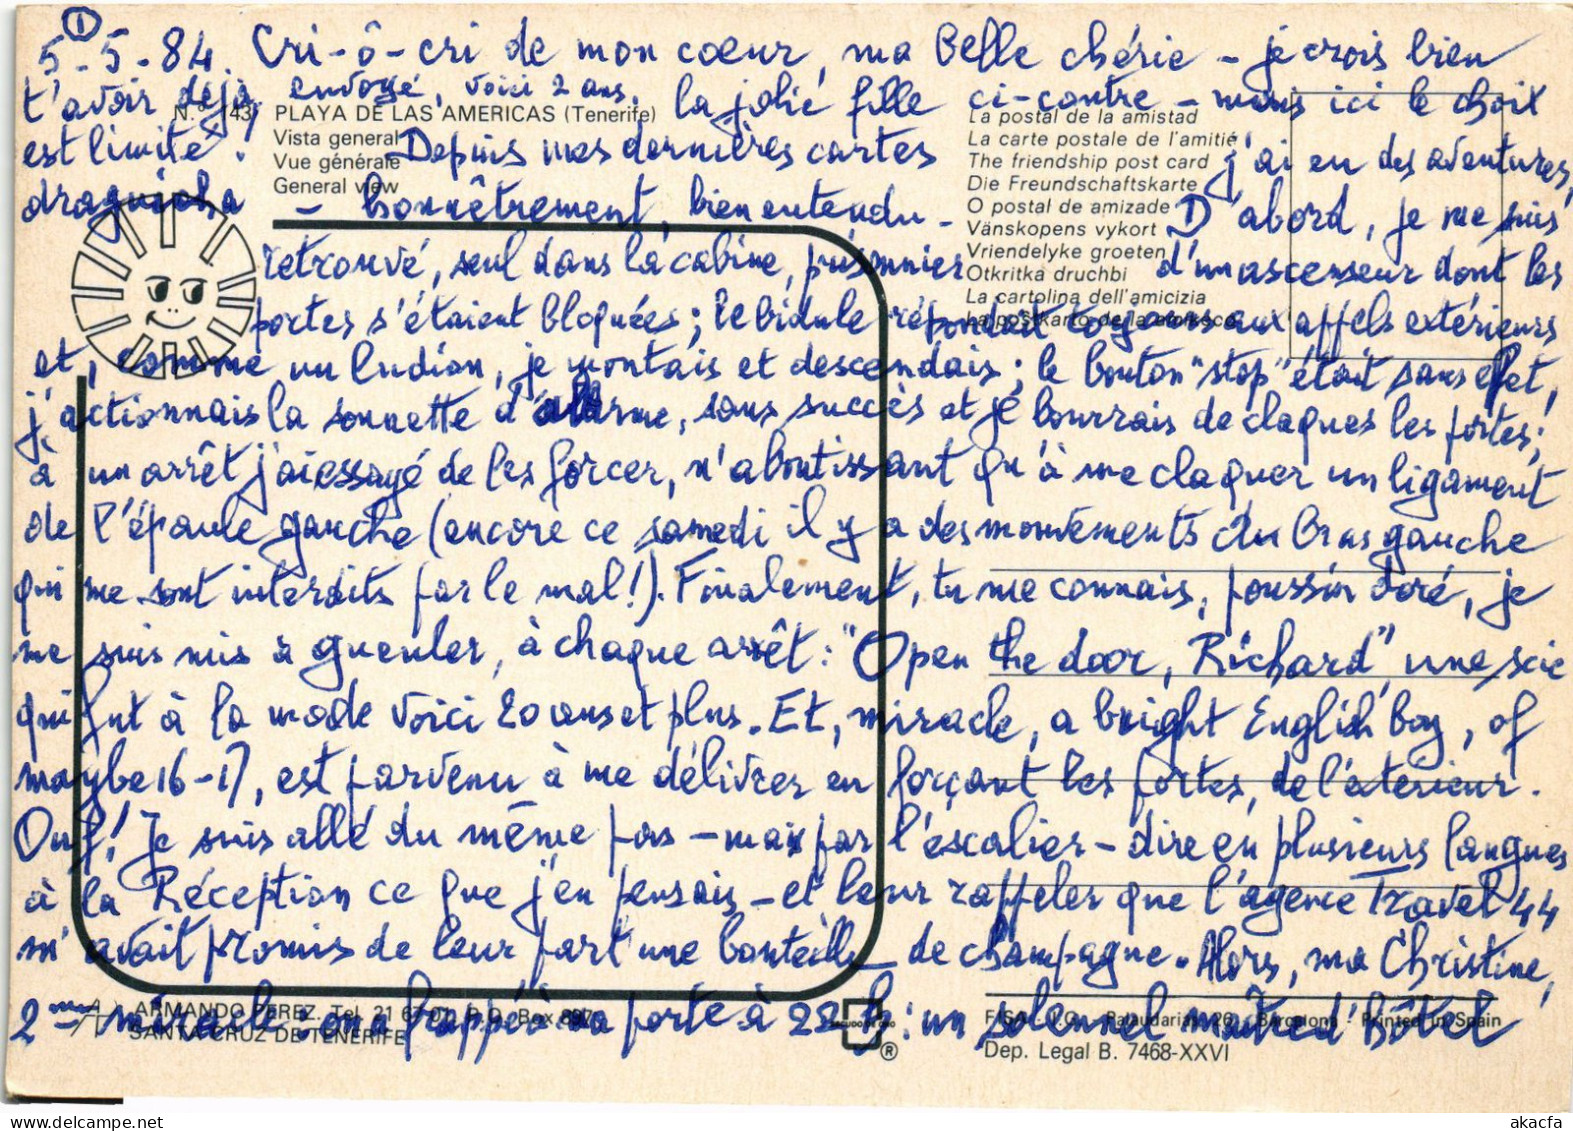 ①
5-5-84. Cri-ô-cri de mon coeur, ma belle chérie - je crois bien
t'avoir déjà envoyé, voici 2 ans, la jolie fille ci-contre - mais ici le choix
N.º 43 PLAYA DE LAS AMERICAS (Tenerife)
Vista general
Vue générale
General view
La postal de la amistad
La carte postale de l'amitié
The friendship post card
Die Freundschaftskarte
O postal de amizade
Vänskopens vykort
Vriendelyke groeten
Otkritka druchbi
La cartolina dell'amicizia
est limité! - Depuis mes dernières cartes j'ai eu des aventures,
- honnêtrement, bien entendu - D'abord, je me suis
retrouvé, seul dans la cabine, prisonnier d'un ascenseur dont les
portes s'étaient bloquées; le bidule répondait toujours aux appels extérieurs
et, comme un ludion, je montais et descendais; le bouton "stop" était sans effet,
j'actionnais la sonnette d'alarme, sans succès et je bourrais de claques les portes;
à un arrêt j'ai essayé de les forcer, n'aboutissant qu'à me claquer un ligament
de l'épaule gauche (encore ce samedi il y a des mouvements du bras gauche
qui me sont interdits par le mal!). Finalement, tu me connais, poussin doré, je
me suis mis à gueuler, à chaque arrêt: "Open the door, Richard", une scie
qui fut à la mode voici 20 ans et plus. Et, miracle, a bright English boy, of
maybe 16-17, est parvenu à me délivrer en forçant les portes, de l'extérieur.
Ouf! Je suis allé du même pas - mais par l'escalier - dire en plusieurs langues
à la Réception ce que j'en pensais - et leur rappeler que l'agence Travel 44
m'avait promis de leur part une bouteille de champagne. Alors, ma Christine,
2ème miracle: on frappé à ma porte à 22 h: un solennel maître d'hôtel
ARMANDO PEREZ. Tel. 21 6
SANTA CRUZ DE TENERIFE
®
Printed in Spain
Dep. Legal B. 7468-XXVI
akacfa